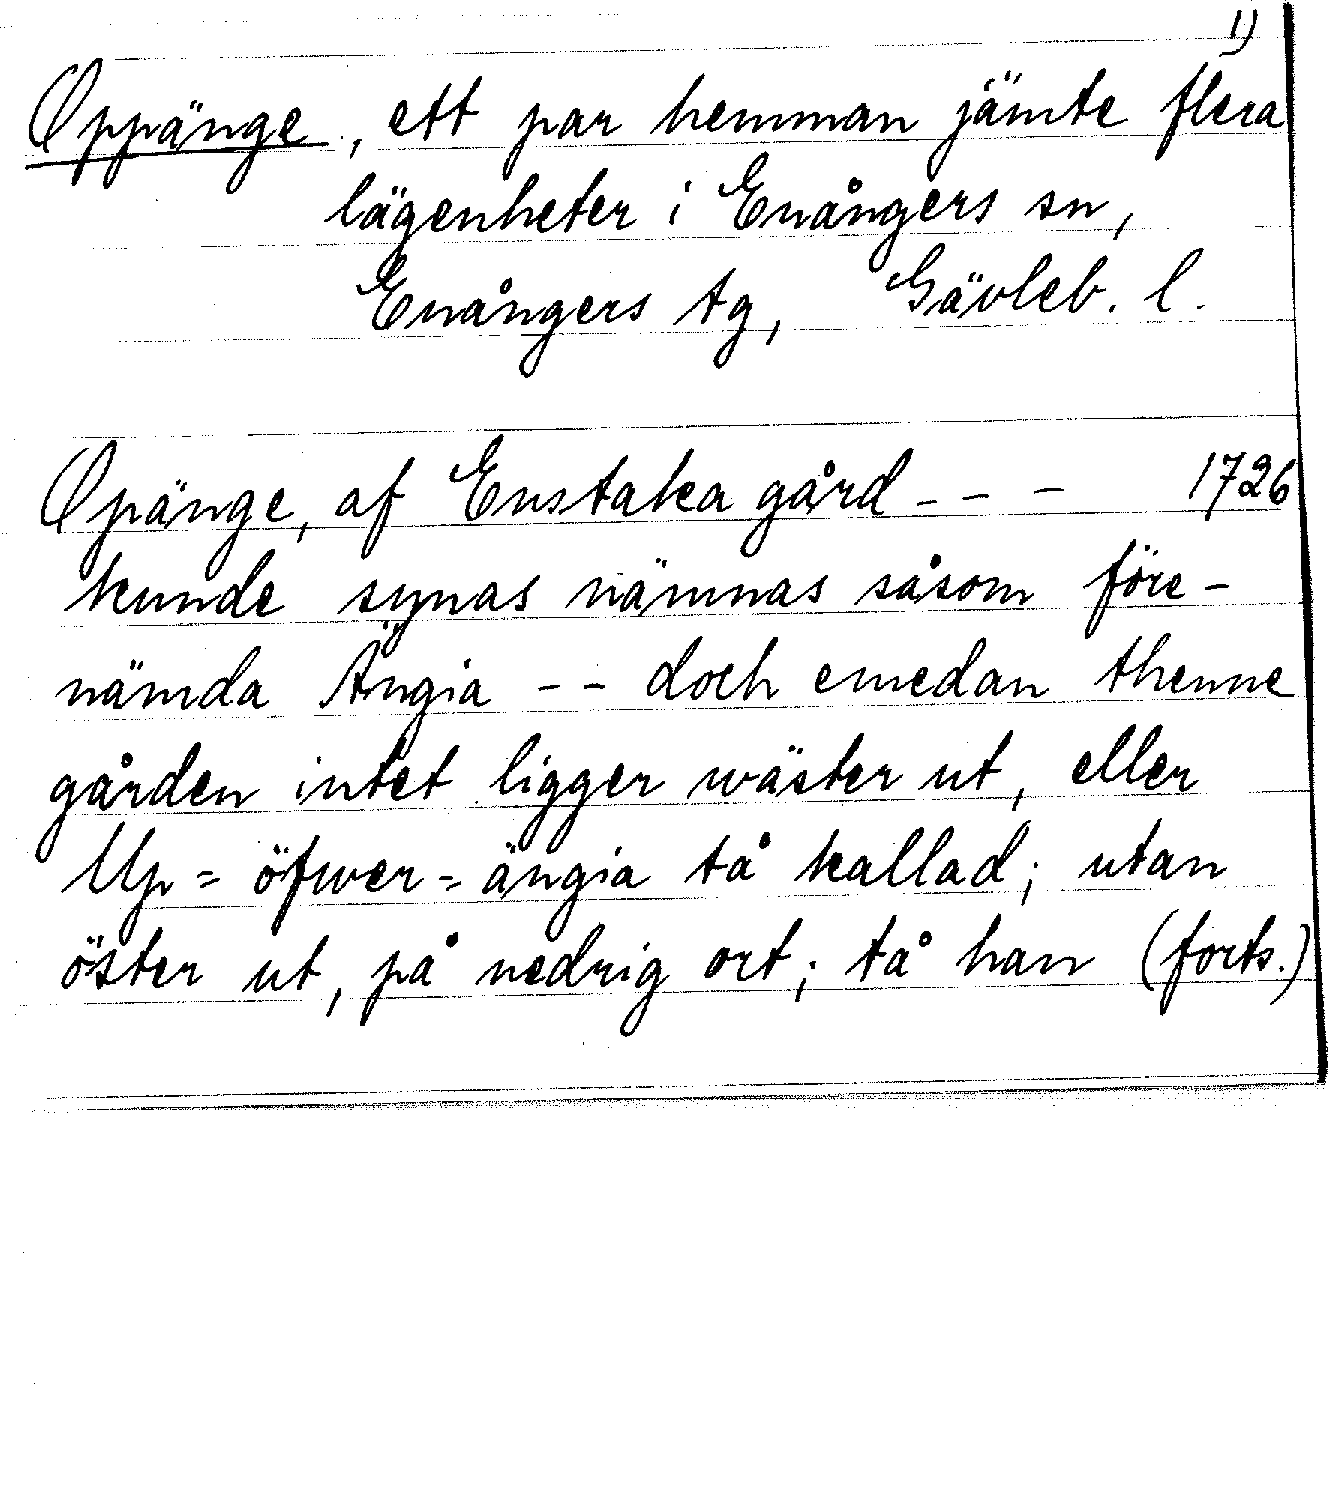 1)
Oppänge, ett par hemman jämte flera
lägenheter i Enångers sn,
Enångers tg, Gävleb. l.
Opänge, af Enstaka gård - - - 1726
kunde synas nämnas såsom före-
nämda Ängia - - doch emedan thenne
gården intet ligger wäster ut, eller
Up = öfwer = ängia tå kallad; utan
öster ut, på nedrig ort; tå han (forts.)